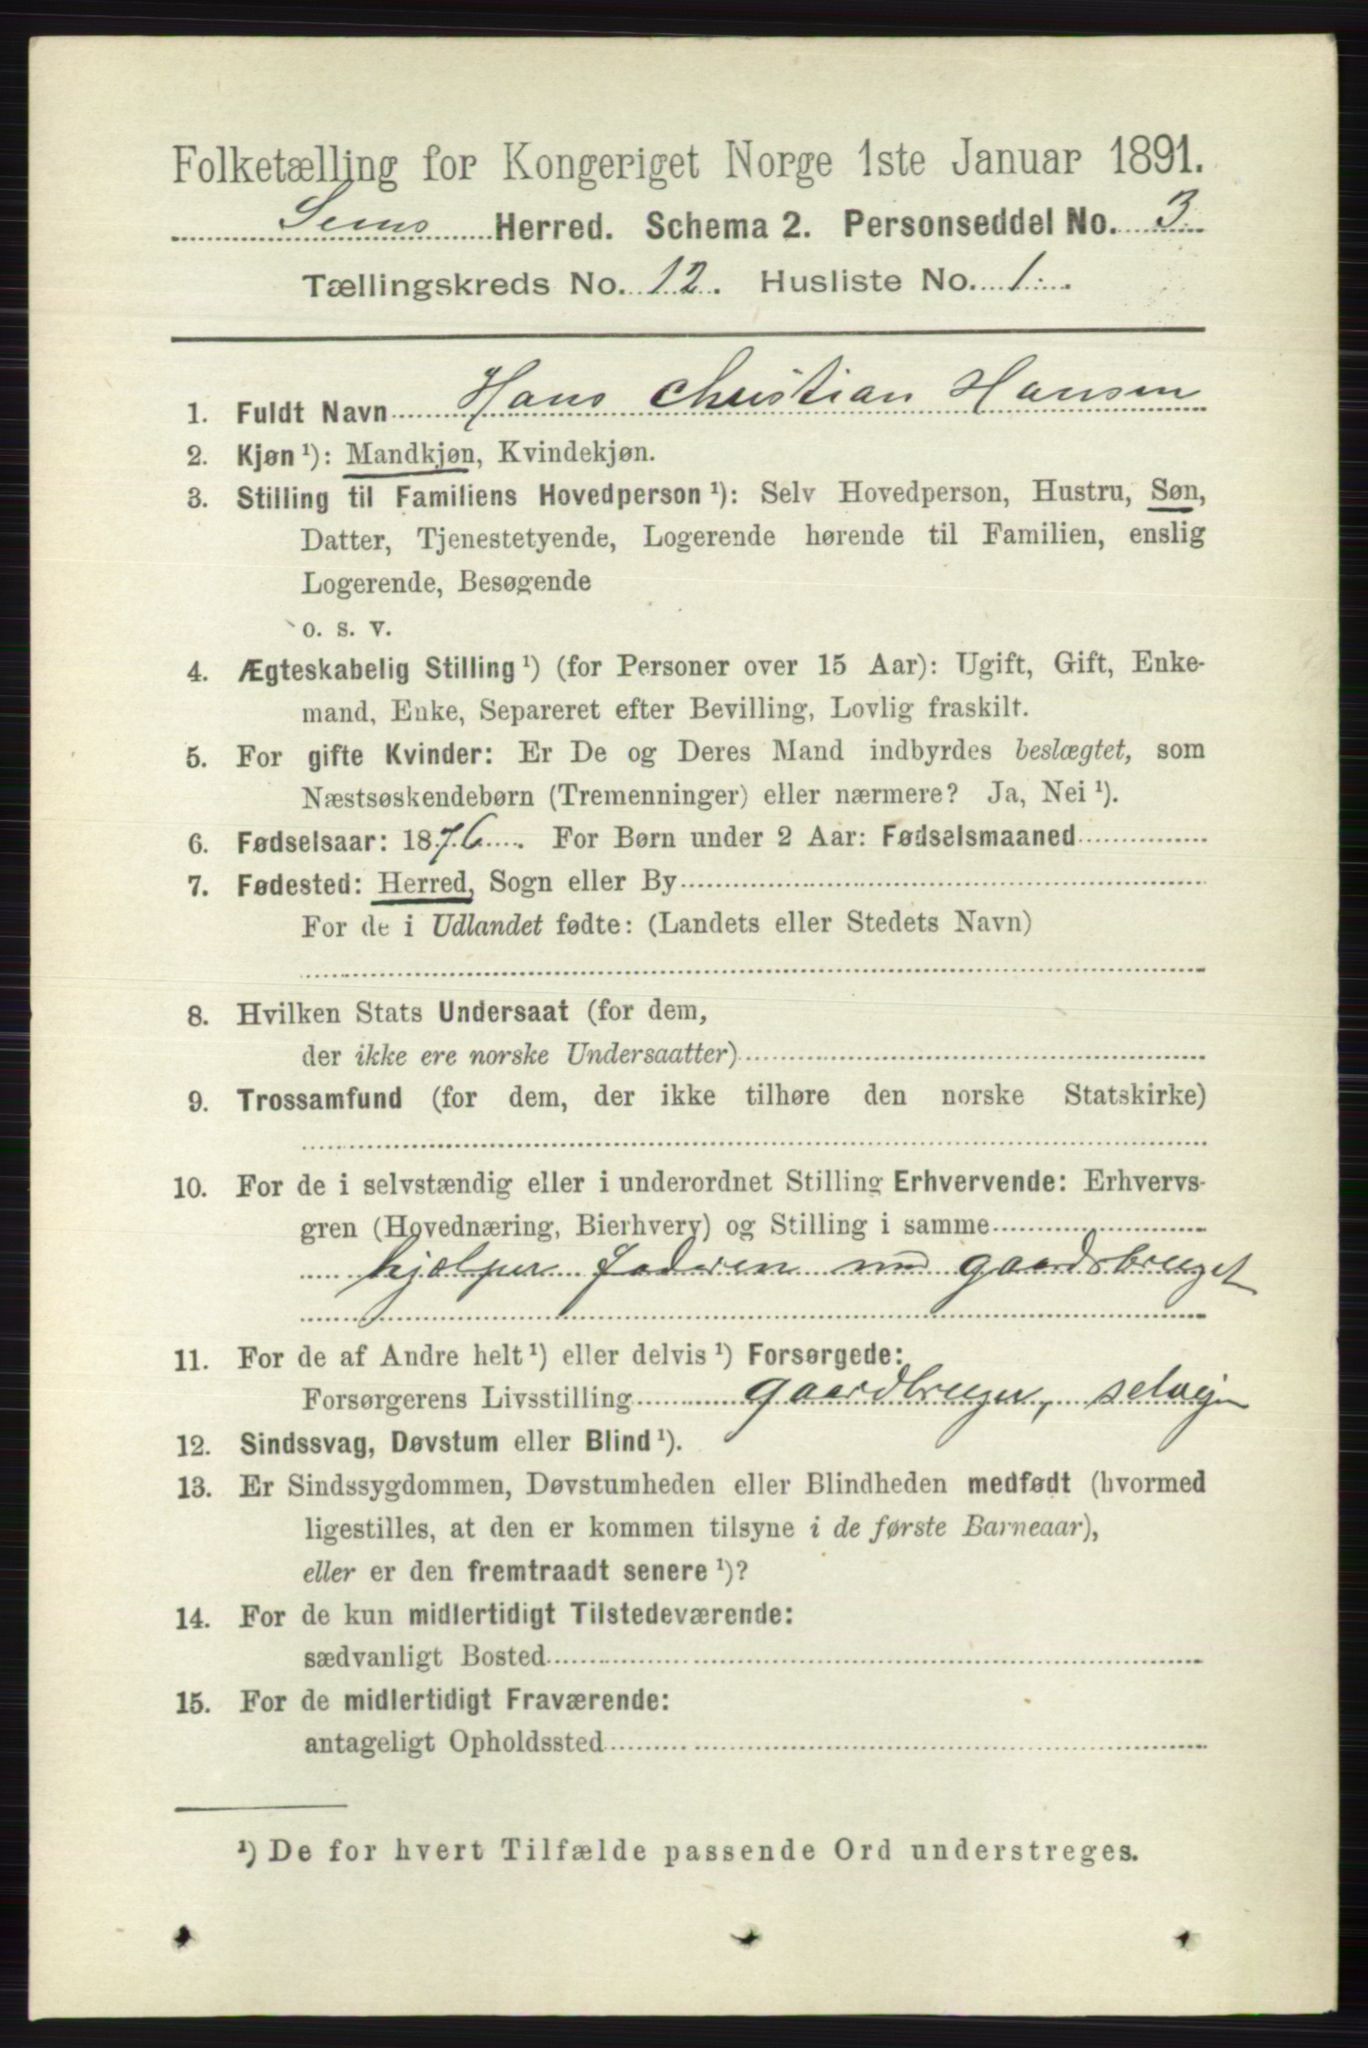 Folketælling for Kongeriget Norge 1ste Januar 1891.
Sems Herred. Schema 2. Personseddel No. 3.
Tællingskreds No. 12. Husliste No. 1.
1. Fuldt Navn Hans Christian Hansen
2. Kjøn ¹): Mandkjøn, Kvindekjøn.
3. Stilling til Familiens Hovedperson ¹): Selv Hovedperson, Hustru, Søn,
Datter, Tjenestetyende, Logerende hørende til Familien, enslig
Logerende, Besøgende
o. s. v.
4. Ægteskabelig Stilling ¹) (for Personer over 15 Aar): Ugift, Gift, Enke-
mand, Enke, Separeret efter Bevilling, Lovlig fraskilt.
5. For gifte Kvinder: Er De og Deres Mand indbyrdes beslægtet, som
Næstsøskendebørn (Tremenninger) eller nærmere? Ja, Nei ¹).
6. Fødselsaar: 1876. For Børn under 2 Aar: Fødselsmaaned
7. Fødested: Herred, Sogn eller By
For de i Udlandet fødte: (Landets eller Stedets Navn)
8. Hvilken Stats Undersaat (for dem,
der ikke ere norske Undersaatter)
9. Trossamfund (for dem, der ikke tilhøre den norske Statskirke)
10. For de i selvstændig eller i underordnet Stilling Erhvervende: Erhvervs-
gren (Hovednæring, Bierhverv) og Stilling i samme
hjælper Faderen med gaardsbruget
11. For de af Andre helt ¹) eller delvis ¹) Forsørgede:
Forsørgerens Livsstilling gaardbruger, selveier
12. Sindssvag, Døvstum eller Blind ¹).
13. Er Sindssygdommen, Døvstumheden eller Blindheden medfødt (hvormed
ligestilles, at den er kommen tilsyne i de første Barneaar),
eller er den fremtraadt senere ¹)?
14. For de kun midlertidigt Tilstedeværende:
sædvanligt Bosted
15. For de midlertidigt Fraværende:
antageligt Opholdssted
¹) De for hvert Tilfælde passende Ord understreges.